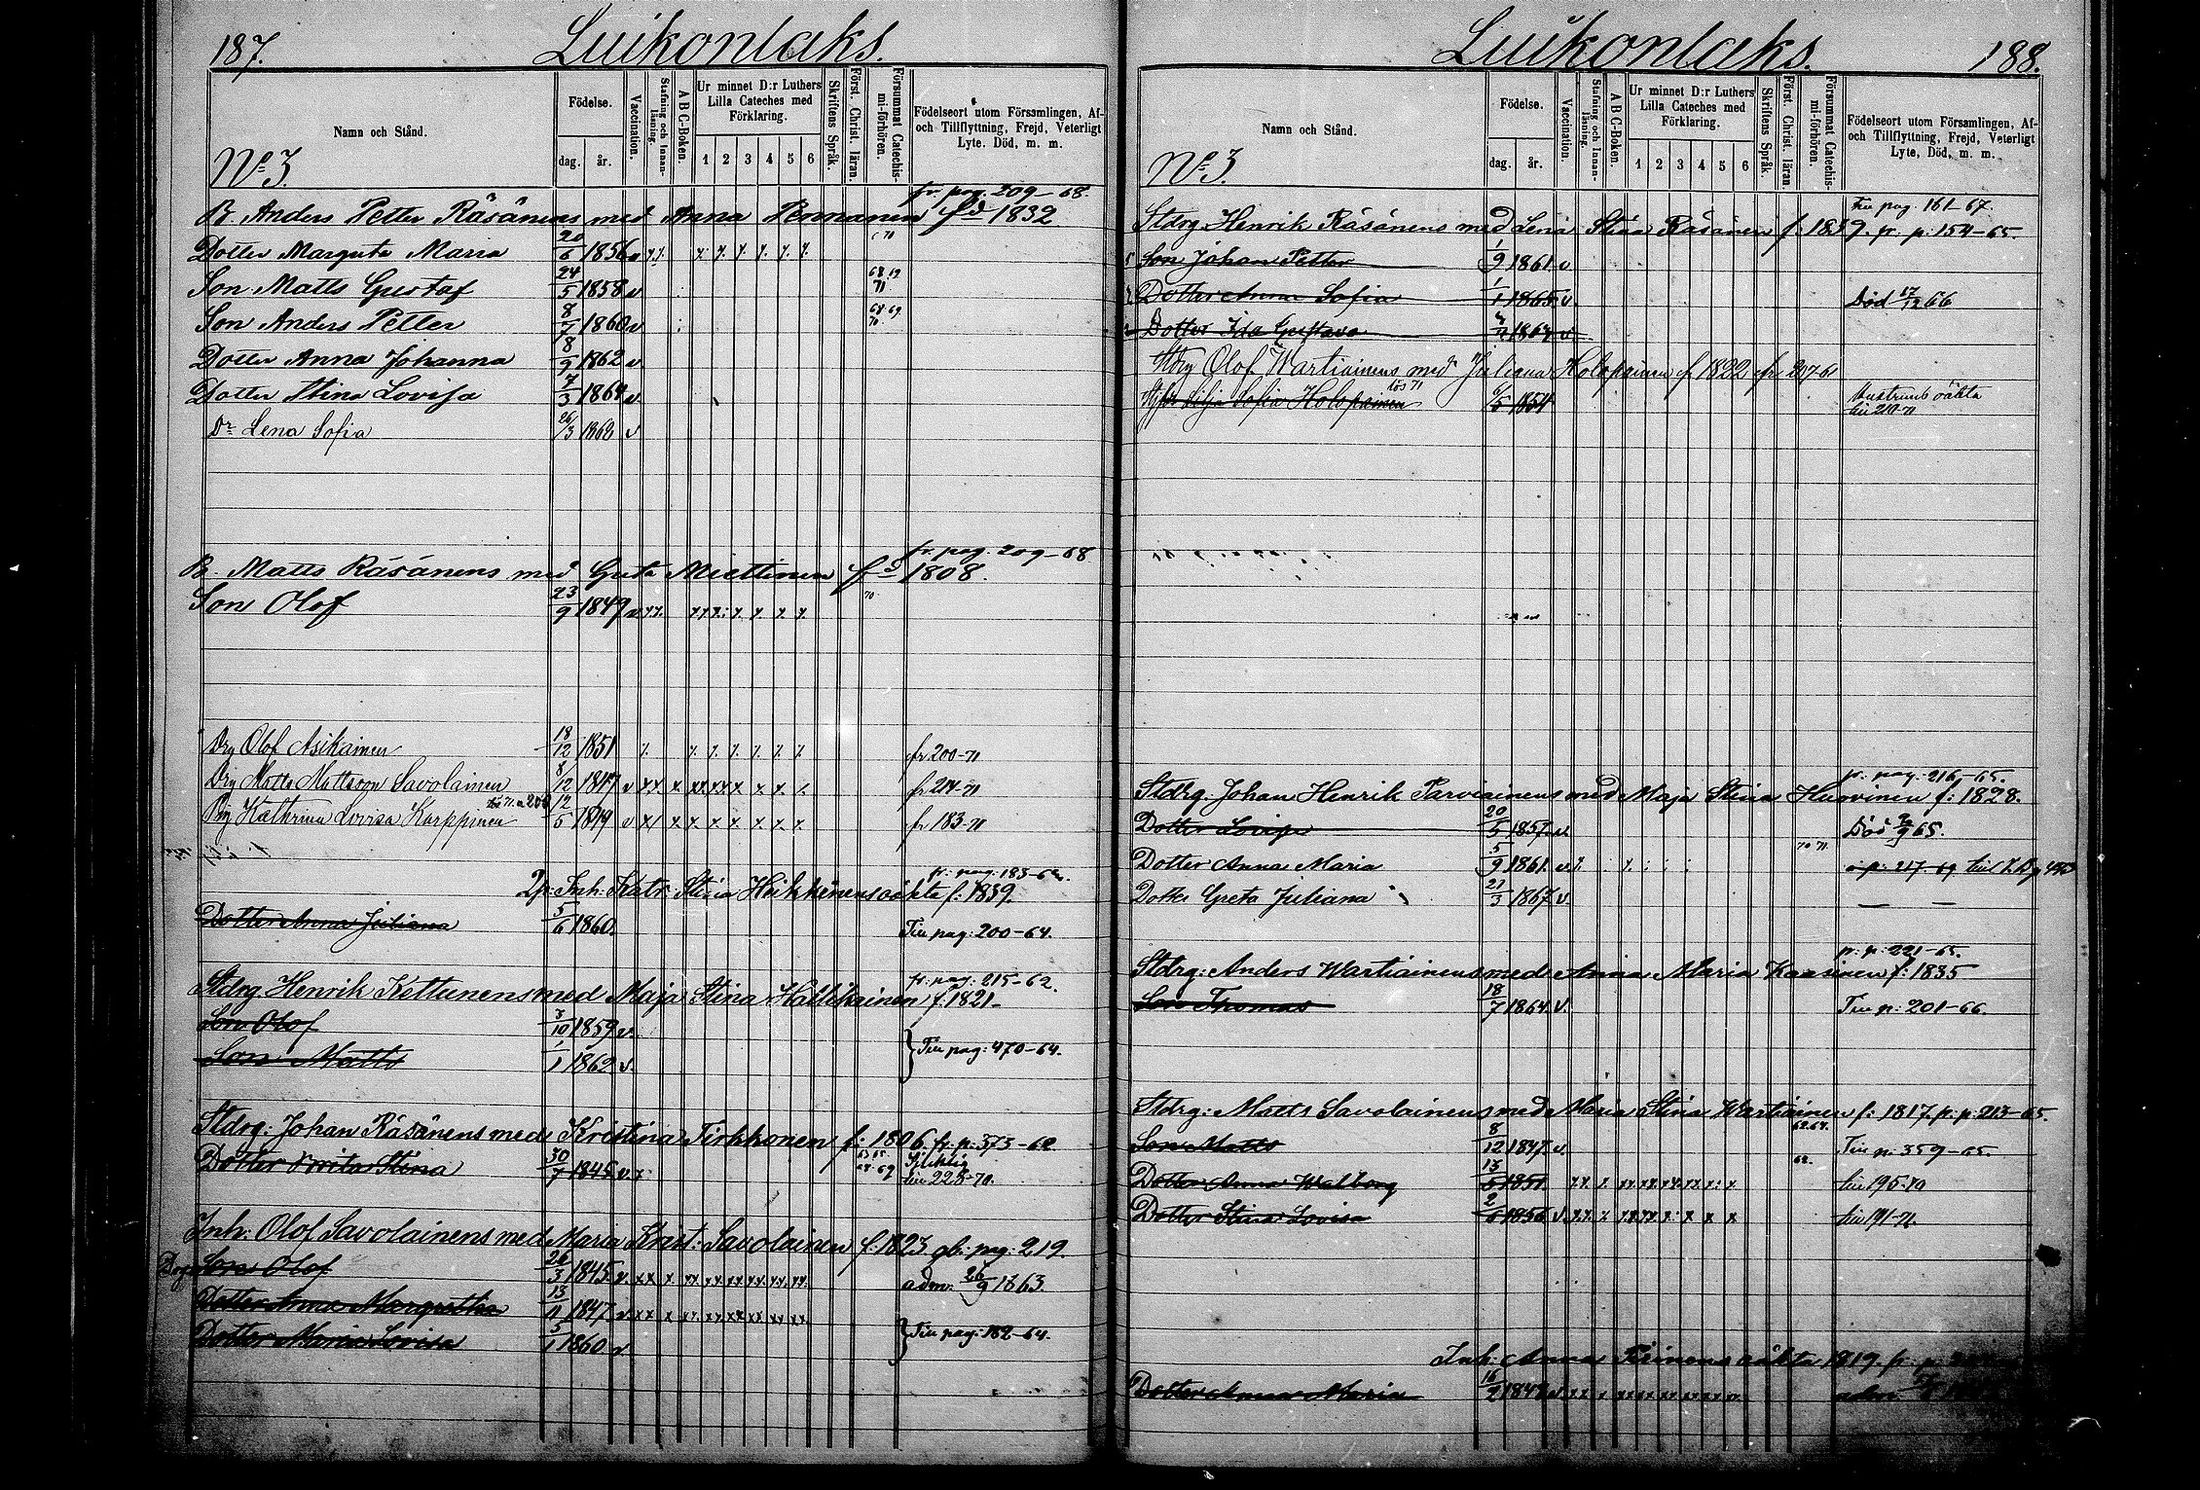 187. Luikonlaks.
Namn och Stånd.
Födelse.
dag. år.
Vaccination.
Stafning och Innan-läsning.
A B C-Boken.
Ur minnet D:r Luthers Lilla Cateches med Förklaring.
1 2 3 4 5 6
Skriftens Språk.
Först. Christ. läran.
Försummat Catechis-mi-förhören.
Födelseort utom Församlingen, Af- och Tillflyttning, Frejd, Veterligt Lyte. Död, m. m.
No 3.
fr. pag. 209-68.
B. Anders Petter Räsänens med Anna Pennanen fd 1832
Dotter Margeta Maria 20/6 1856 v
Son Matts Gustaf 24/5 1858 v 68 69 71
Son Anders Petter 8/7 1860 v 68 69 70
Dotter Anna Johanna 18/9 1862 v
Dotter Stina Lovisa 7/3 1864 v
Dr Lena Sofia 26/3 1868 v
fr. pag. 209-68
B. Matts Räsänens med Greta Miettinen fd 1808.
Son Olof 23/9 1849 v 70
Drg Olof Asikainen 18/12 1851 fr 200-71
Drg Matts Mattsson Savolainen 8/12 1847 v fr 214-71
Pig Kathrina Lovisa Karppinen 12/5 1849 v fr 183-71
fr: pag: 183-62.
Inh: Katr: Stina Heikkinens oäkta f: 1839.
Dotter Anna Juliana 5/6 1860. Till pag: 200-64.
fr: pag: 215-62.
Stdrg. Henrik Kettunens med Maja Stina Hallikainen f. 1821-
Son Olof 10 1859 v.
Son Matts 1/1 1862 v. } Till pag: 470-64.
Stdrg: Johan Räsänens med Kristina Tirkkonen f: 1806. fr: p: 373-62
Dotter Brita Stina 30/7 1845 v Sjuklig till 228-70.
Inh: Olof Savolainens med Maria Krist: Savolainen f: 1823 gb: pag: 219.
Drg Son Olof 26/3 1845 v. adm. 26/9 1863.
Dotter Anna Margretha 13/11 1847 v
Dotter Maria Lovisa 5/1 1860 v } Till pag: 182-64.
Luikonlaks. 188.
Namn och Stånd.
Födelse.
dag. år.
Vaccination.
Stafning och Innan-läsning.
A B C-Boken.
Ur minnet D:r Luthers Lilla Cateches med Förklaring.
1 2 3 4 5 6
Skriftens Språk.
Först. Christ. läran
Försummat Catechis-mi-förhören.
Födelseort utom Församlingen, Af- och Tillflyttning, Frejd, Veterligt Lyte, Död, m. m.
No 3.
Till pag. 161-67.
Stdrg. Henrik Räsänens med Lena Stina Räsänen f: 1839. fr. p: 154-65.
Son Johan Petter 1/9 1861 v
Dotter Anna Sofia 1/1 1865 v. Död 17/12 66
Dotter Ida Gustava 1867 v
Stdrg Olof Wartiainens med Juliana Holopainen f 1822 fr 207-61
Silja Sofia Holopainen 6/5 1854 oäkta
till 210-71
fr: pag: 216-65.
Stdrg. Johan Henrik Parviainens med Maja Stina Huovinen f: 1828.
Dotter Lovisa 20/5 1857 v. Död /9 65.
Dotter Anna Maria 5/9 1861. v. 70 71. p: 217-69
Dotter Greta Juliana 21/3 1867 v.
fr: p: 221-65.
Stdrg: Anders Wartiainens med Anna Maria Kaasinen f: 1835
Son Thomas 18/7 1864 v. Till p: 201-66.
Stdrg: Matts Savolainens med Maria Stina Wartiainen f: 1817. fr: p: 213-65.
Son Matts 8/12 1847. v. Till p: 359-65.
Dotter Anna Walborg 13/5 1851. till 195-70
Dotter Stina Lovisa 2/6 1856 v till 191-71.
Inh: Anna oäkta 1819. fr: p:
Dotter Anna Maria 16/2 1848 v adm.